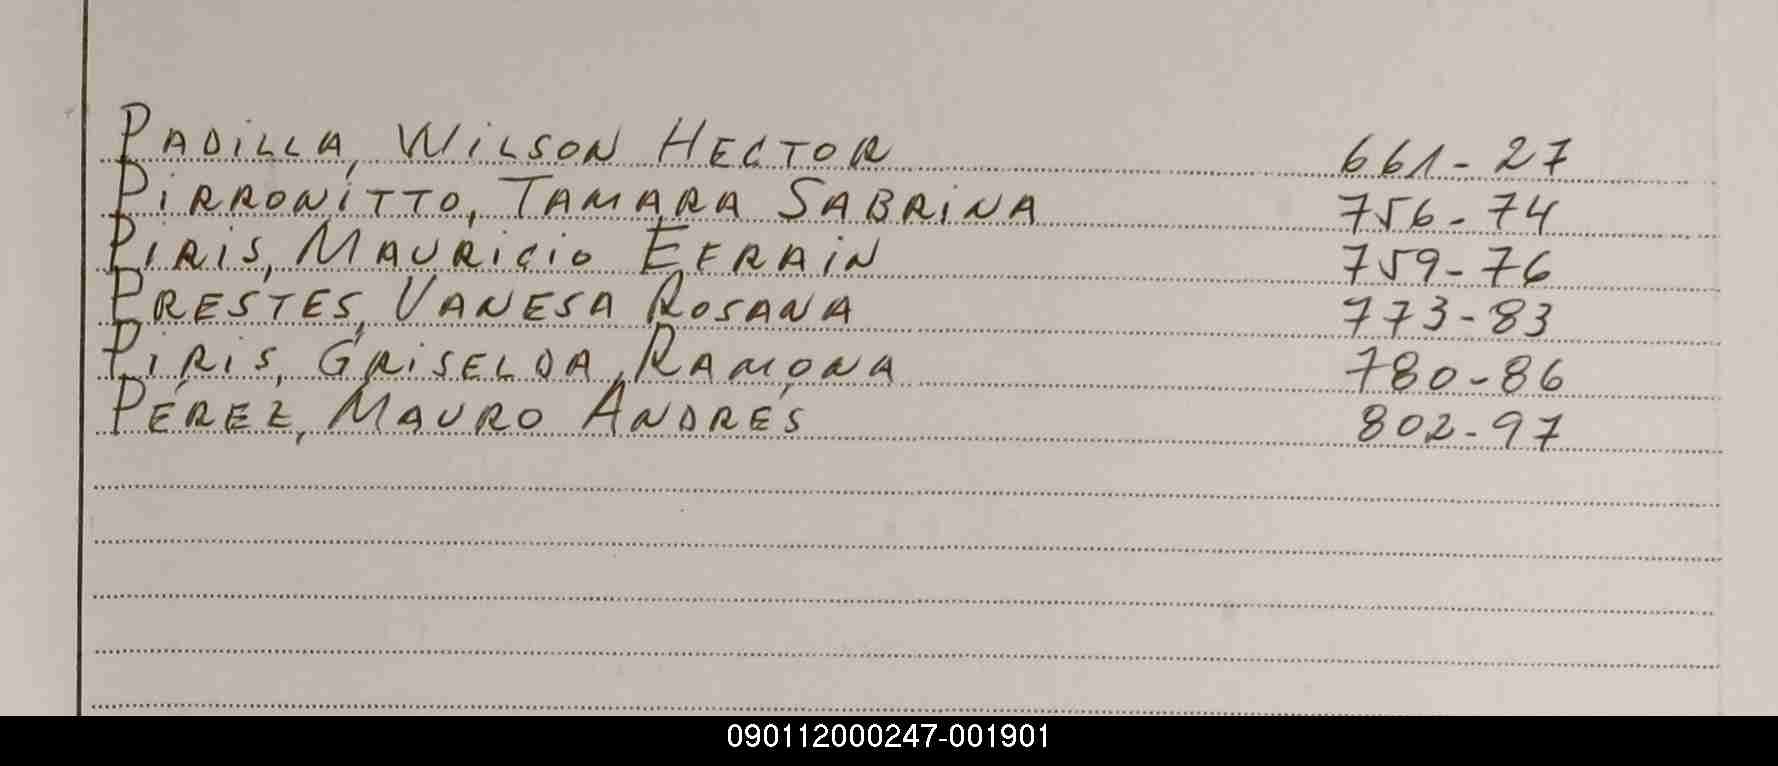 PADILLA, WILSON HECTOR 661-27
PIRRONITTO, TAMARA SABRINA 756-74
PIRIS, MAURICIO EFRAIN 759-76
PRESTES, VANESA ROSANA 773-83
PIRIS, GRISELDA RAMONA 780-86
PÉREZ, MAURO ANDRÉS 802-97
090112000247-001901